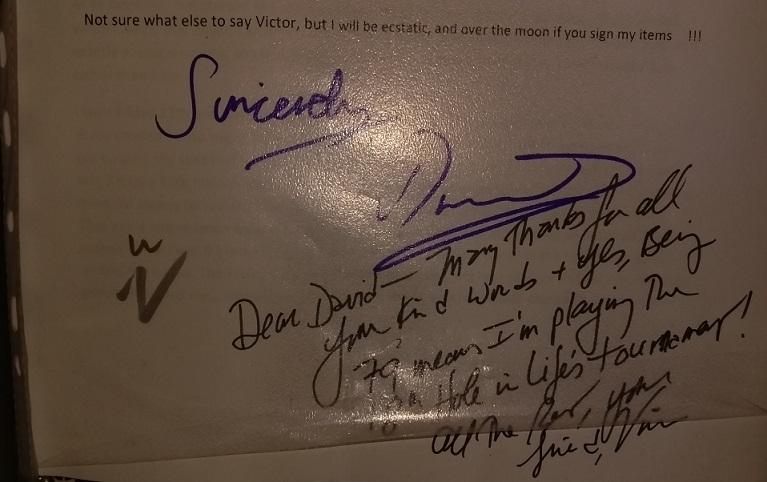 Not sure what else to say Victor, but I will be ecstatic, and over the moon if you sign my items !!!
Sincerely
Dear David — Many Thanks for all
your kind words + yes, Being
79 means I'm playing The
Hole in Life's tournament!
all The Best, your
friend,